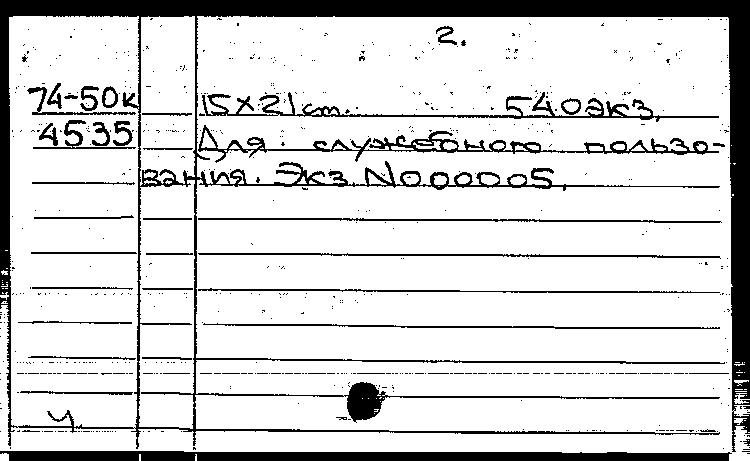 2.
74-50к 15×21 cm. 540экз.
4535 Для служебного пользо-
вания. Экз. N000005.
ч.